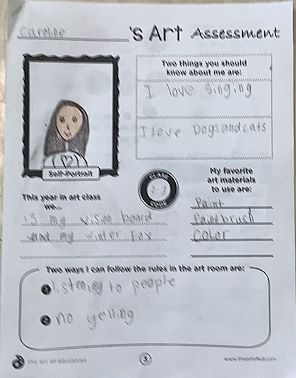 Caroline 's Art Assessment
Two things you should
know about me are:
I love singing
I love Dogs and cats
Self-Portrait
CLASS
CODE
My favorite
art materials
to use are:
Paint
Paintbruch
Color
This year in art class
we...
is my vision board
and my winter Fox
Two ways I can follow the rules in the art room are:
1 listening to people
2 no yelling
the art of education
3
www.theartofed.com